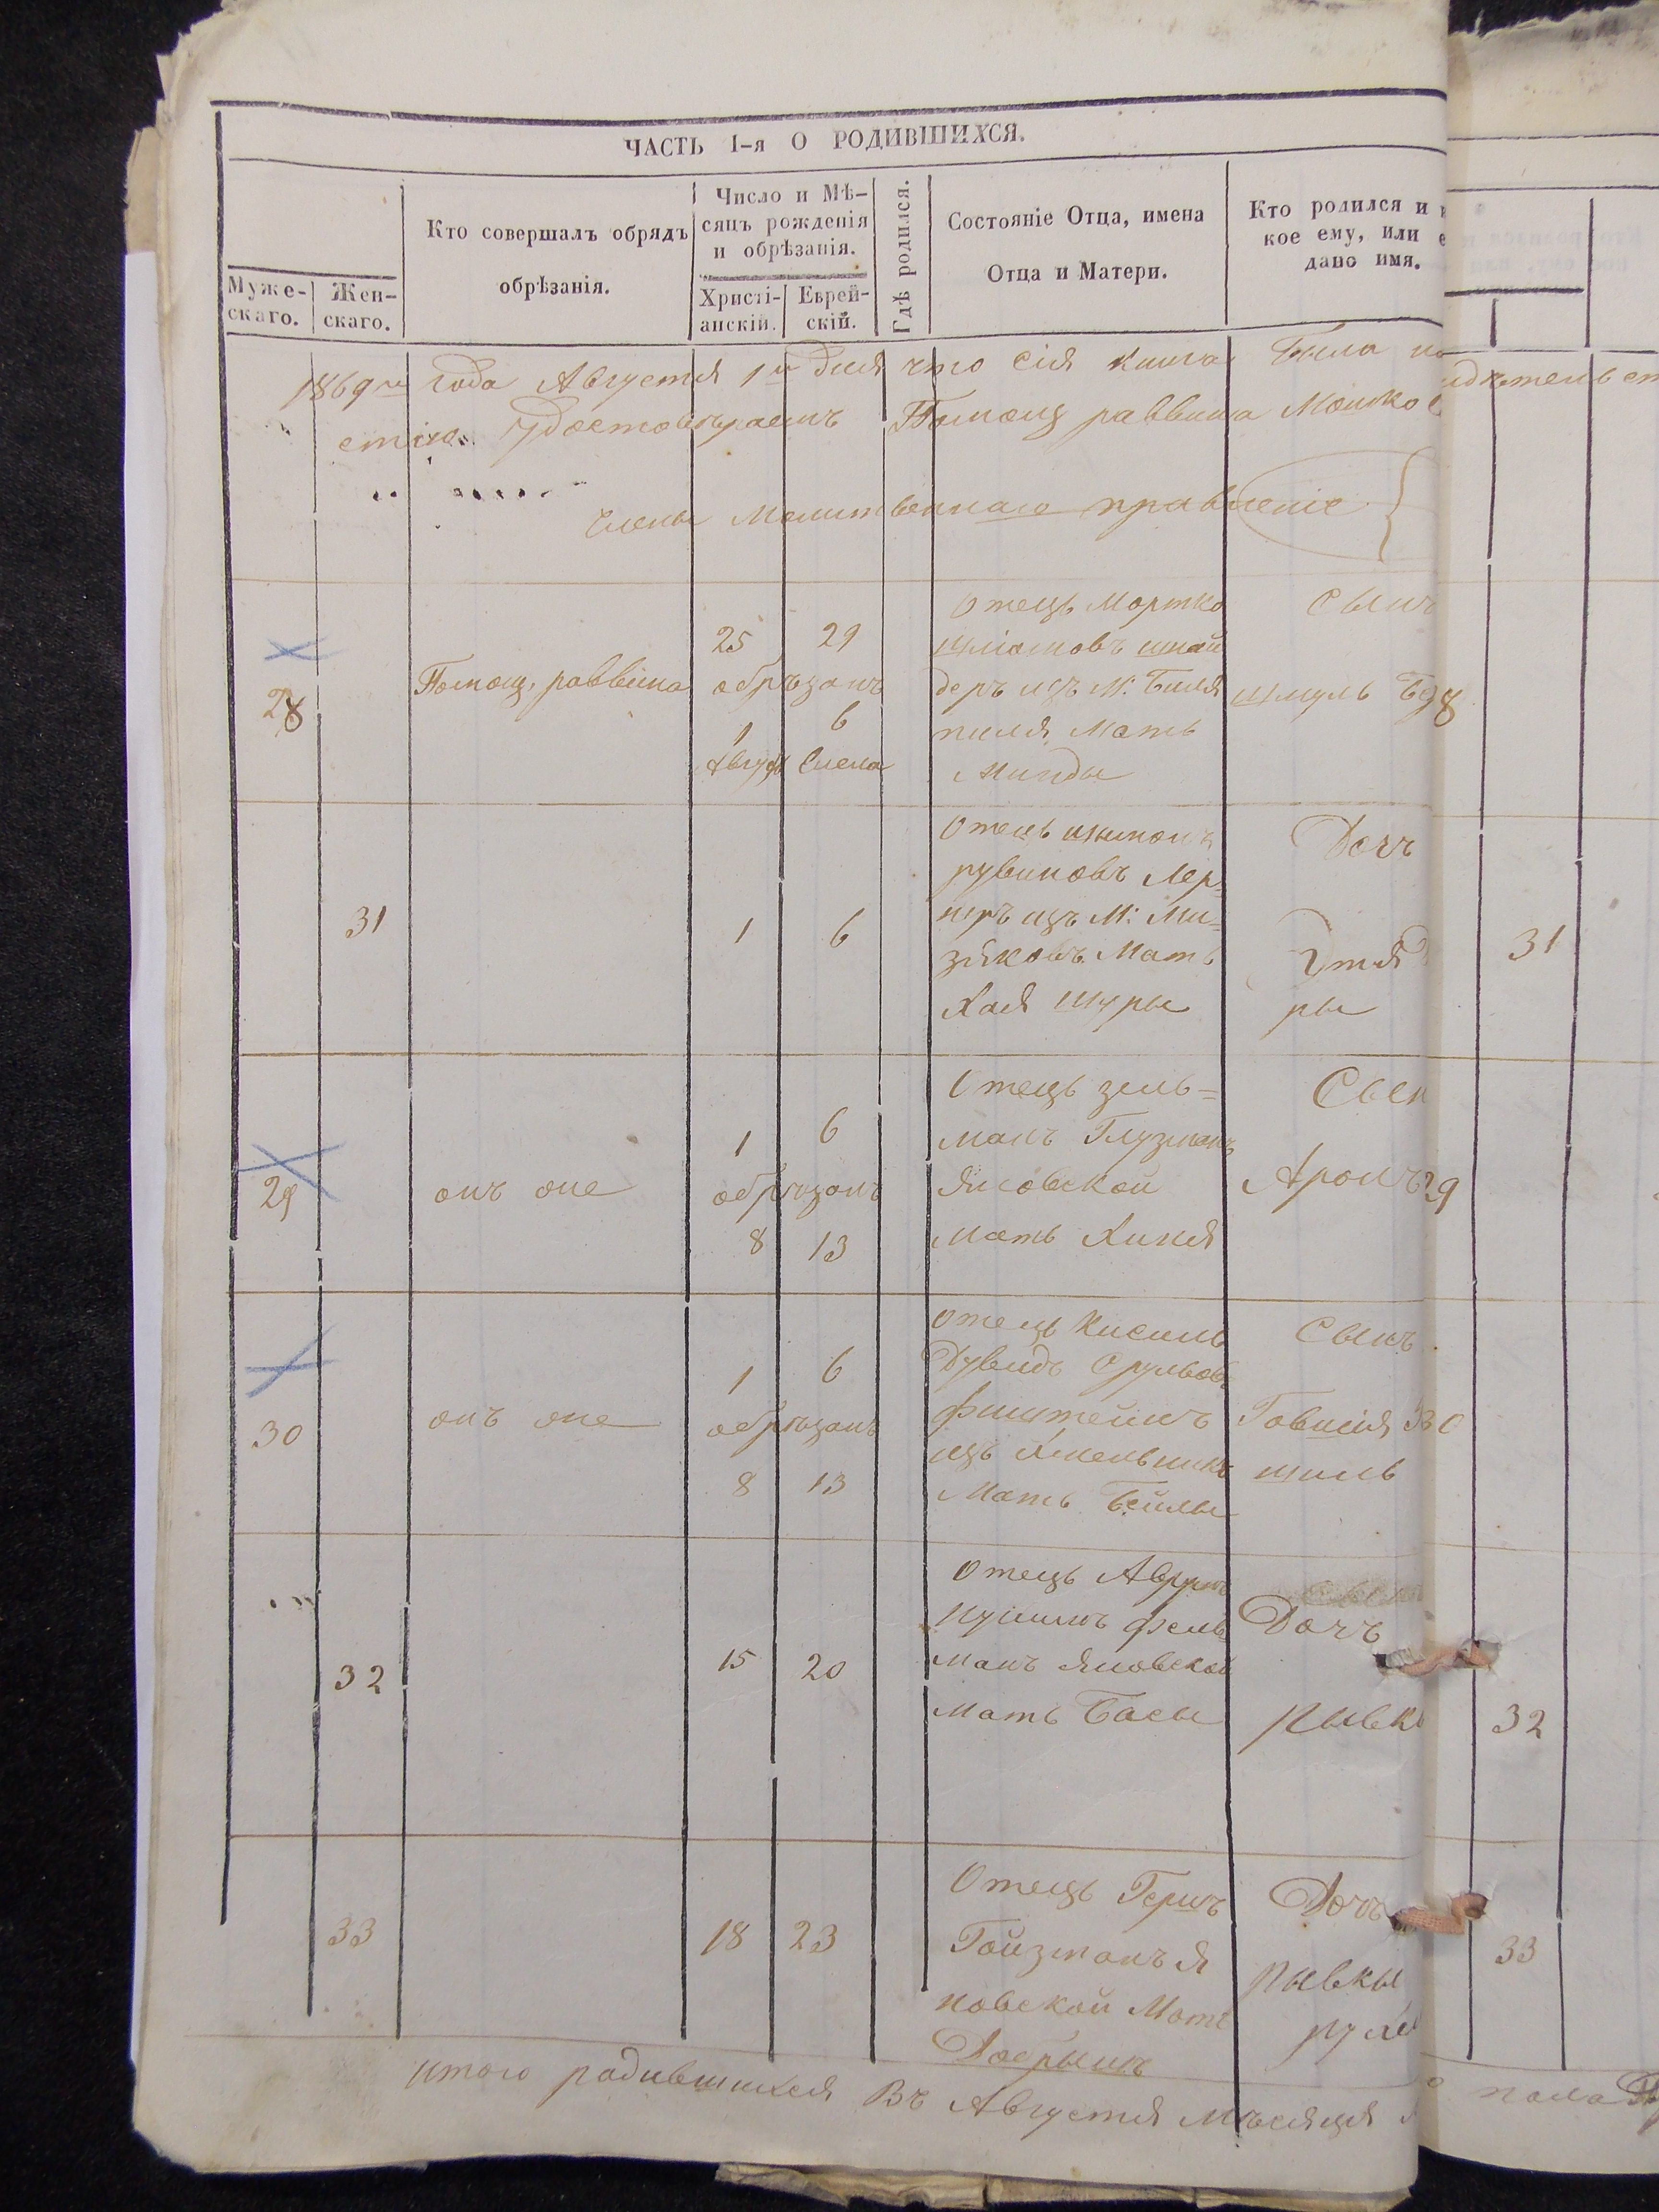 ЧАСТЬ I-я О РОДИВШИХСЯ.
Муже-
скаго.
Жен-
скаго.
Кто совершалъ обрядъ
обрѣзанія.
Число и Мѣ-
сяцъ рожденія
и обрѣзанія.
Христі-
анскій.
Еврей-
скій.
Гдѣ родился.
Состояніе Отца, имена
Отца и Матери.
Кто родился и
кое ему, или
дано имя.
1869го года Августя 1го дня что сія книга была
удостовѣраемъ Помощ раввина Мошко
члены Молитвеннаго правленіе
28
Помощ, раввина
25 29
обрѣзанъ
1 6
Август Елена
Отецъ Мортко
шліомовъ шнай
деръ изъ М:
пиля Мать
Минды
Сынъ
шмуль 28
31
1 6
Отецъ шимонъ
рувиновъ Лер-
неръ изъ М: Ми-
зяковъ Мать
Хая шуры
Дочъ
ры
31
29
онъ оне
1 6
обрѣзанъ
8 13
Отецъ зель=
манъ Глузманъ
Яновской
Мать Хиня
Сын
Аронъ 29
30
онъ оне
1 6
обрѣзанъ
8 13
Отецъ Кисиль
Дувидъ Срульовъ
финтейнъ
изъ Хмельникъ
Мать Бейлы
Сынъ
Говшія 30
шиль
32
15 20
Отецъ Аврумъ
Нушимъ фель
манъ Яновской
Мать Басы
Дочъ
Рывк
32
33
18 23
Отецъ Гершъ
Гойзманъ Я
новской Мать
Добрышъ
Дочъ
Рывкы
рухл
33
итого родившихся Въ Августя Мѣсяця
пола